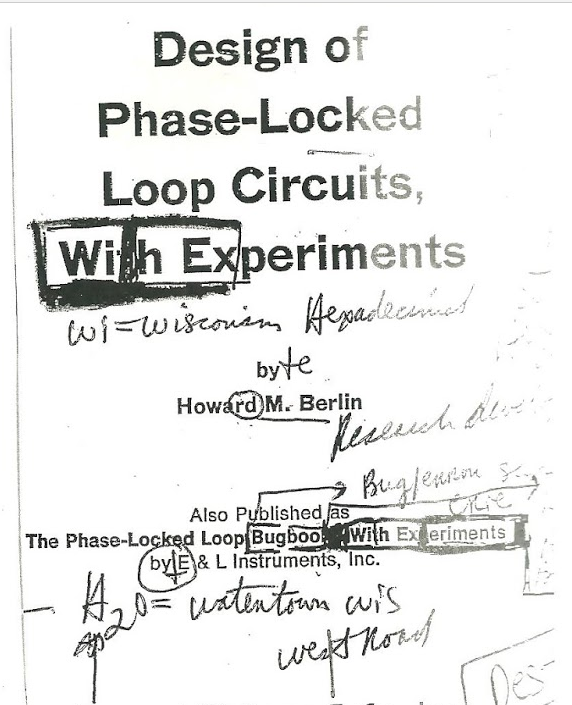 Design of
Phase-Locked
Loop Circuits,
With Experiments
wi=wisconsin Hexadecimal
byte
Howard M. Berlin
Research
Bug/enron
Also Published as
The Phase-Locked Loop Bugbook With Experiments
by E & L Instruments, Inc.
H20= watertown wis
west road
Des